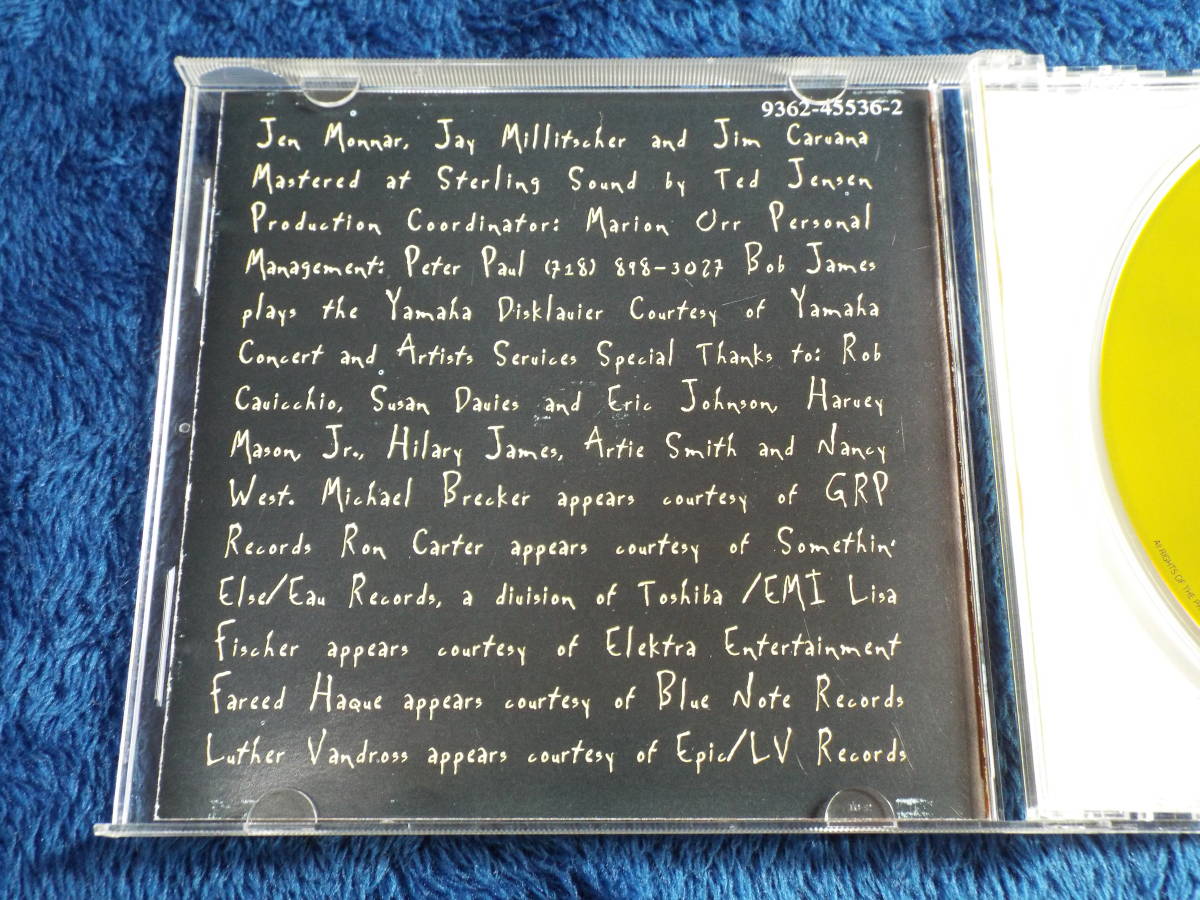 9362-45536-2
Jen Monnar, Jay Millitscher and Jim Caruana
Mastered at Sterling Sound by Ted Jensen
Production Coordinator: Marion Orr Personal
Management: Peter Paul (718) 898-3027 Bob James
plays the Yamaha Disklavier Courtesy of Yamaha
Concert and Artists Services Special Thanks to: Rob
Cavicchio, Susan Davies and Eric Johnson, Harvey
Mason, Jr., Hilary James, Artie Smith and Nancy
West. Michael Brecker appears courtesy of GRP
Records Ron Carter appears courtesy of Somethin'
Else/Eau Records, a division of Toshiba /EMI Lisa
Fischer appears courtesy of Elektra Entertainment
Fareed Haque appears courtesy of Blue Note Records
Luther Vandross appears courtesy of Epic/LV Records
All RIGHTS OF THE